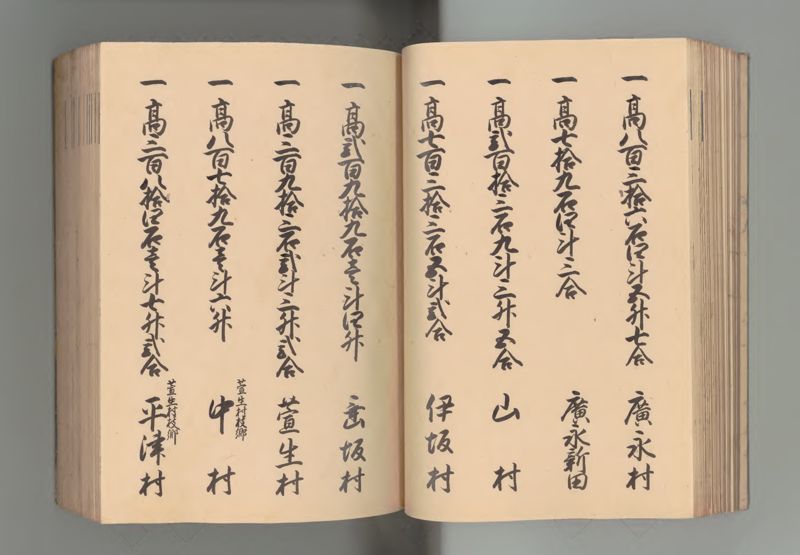 一高八百三拾六石四斗五升七合 廣永村
一高七拾九石四斗三合 廣永新田
一高弐百拾三石九斗三升五合 山村
一高七百三拾三石五斗弐合 伊坂村
一高弐百九拾九石壱斗四升 垂坂村
一高三百九拾三石弐斗三升弐合 萱生村
一高八百七拾九石壱斗六升 萱生村枝郷 中村
一高三百八拾四石壱斗七升弐合 萱生村枝郷 平津村